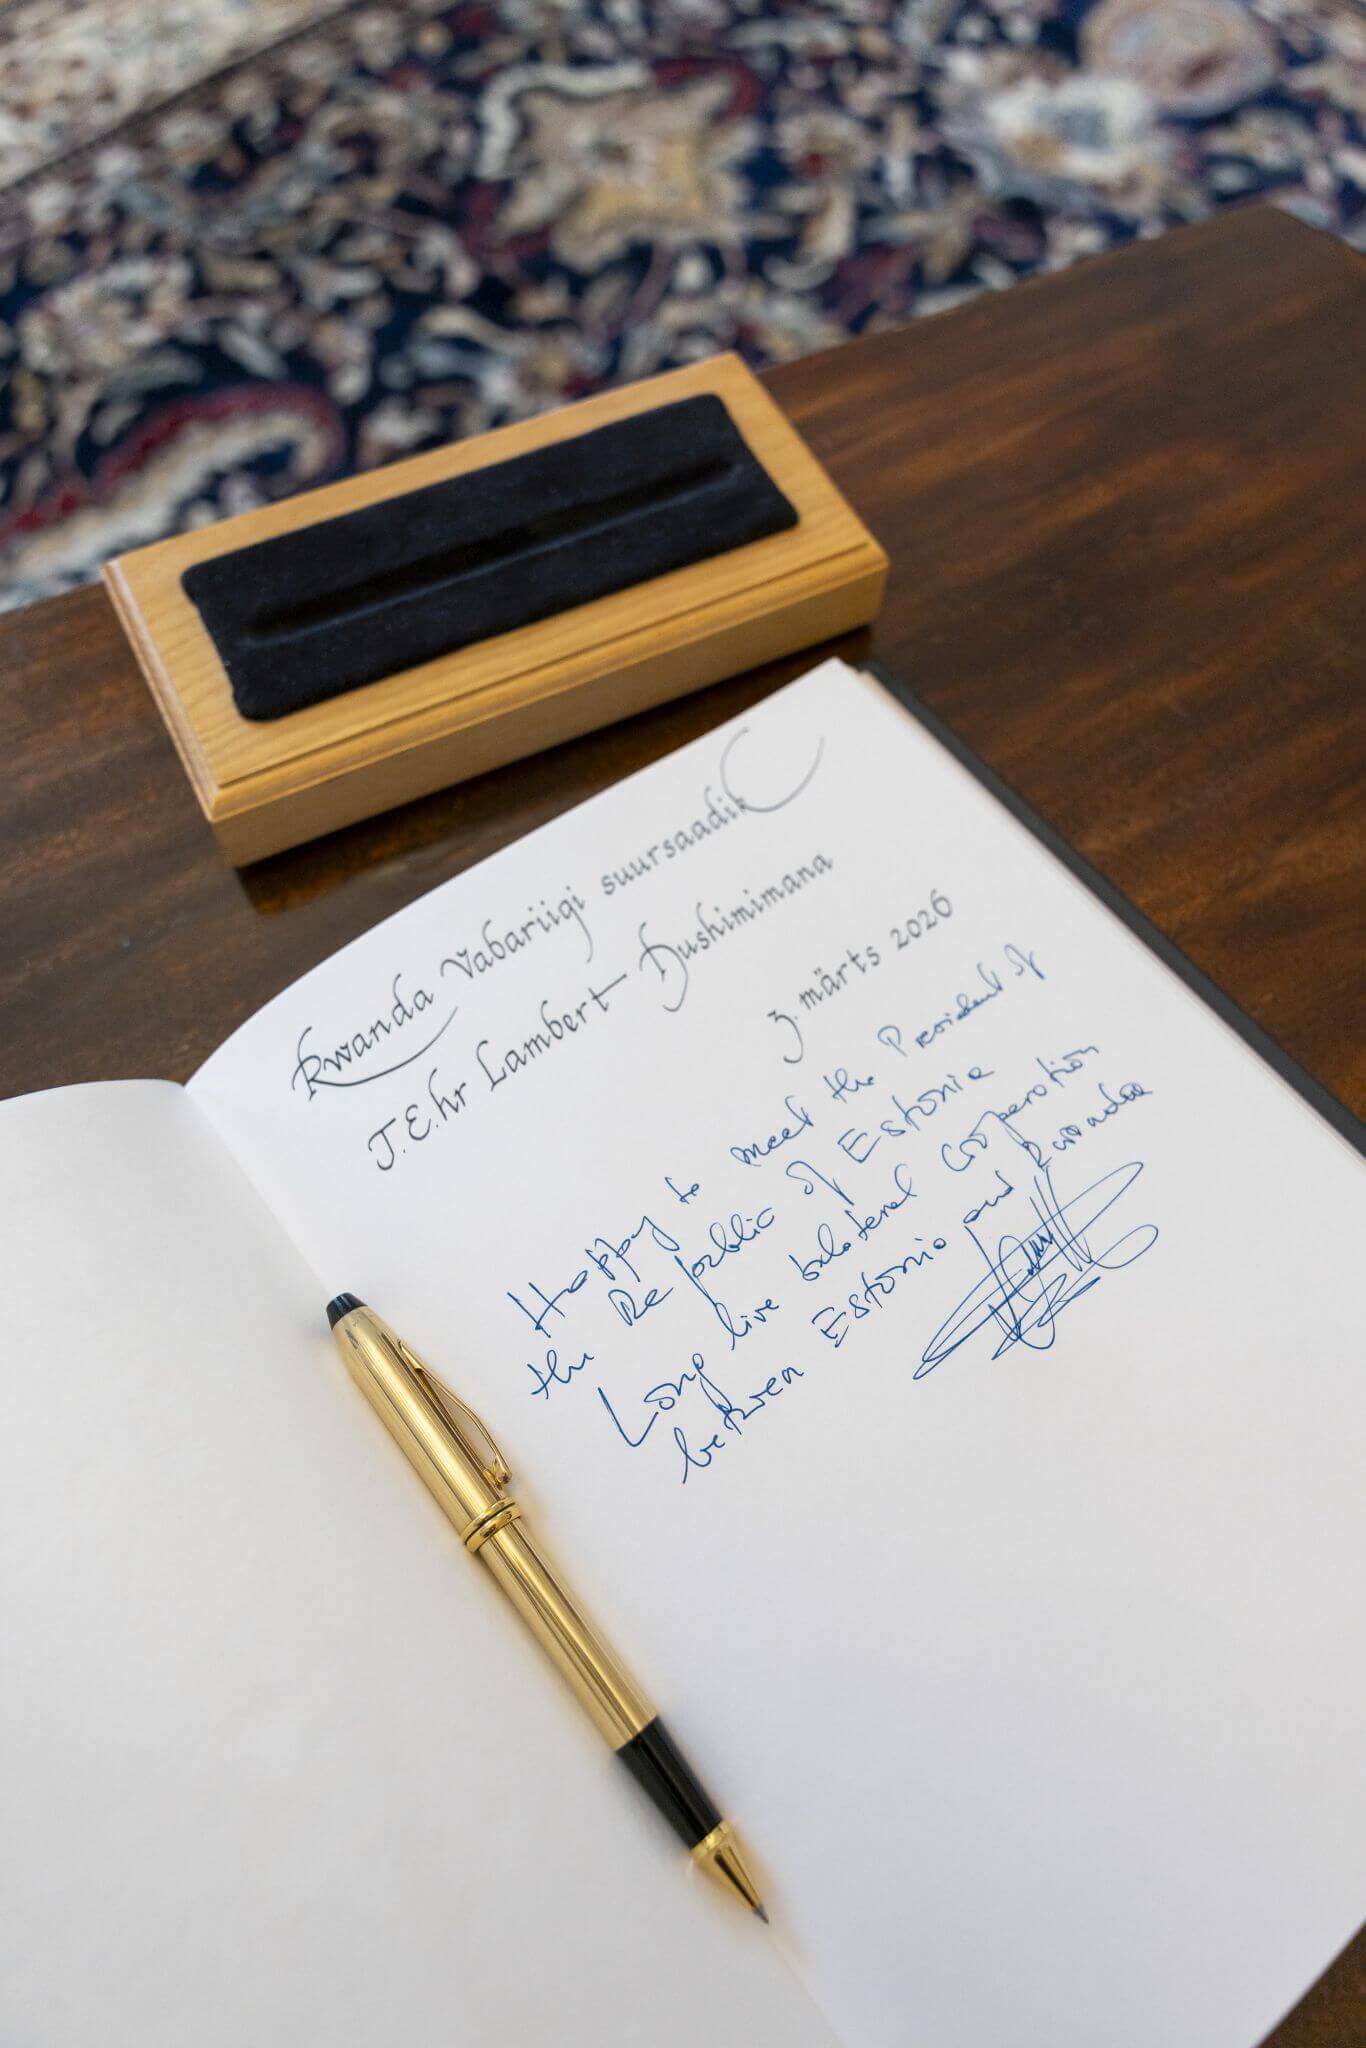 Rwanda Vabariigi suursaadik
T.E.hr Lambert Dushimimana
3. märts 2026
Happy to meet the President of
the Republic of Estonia
Long live bilateral Cooperation
between Estonia and Rwanda